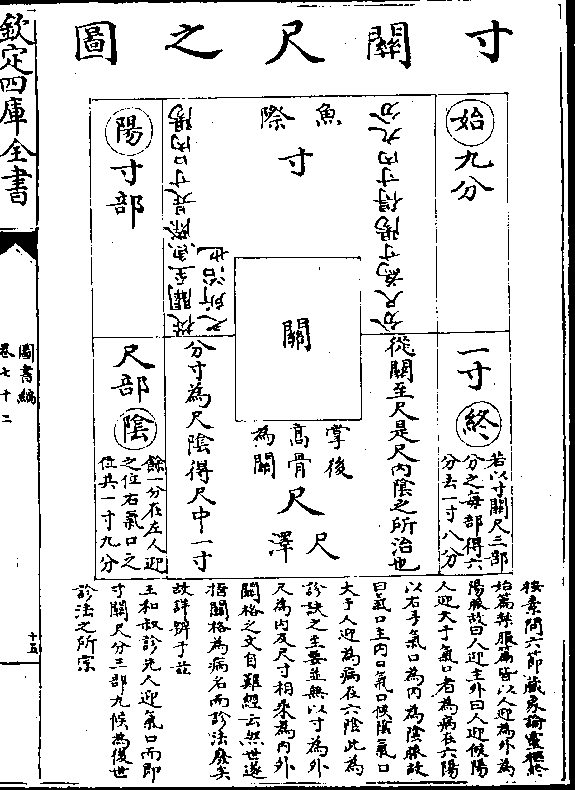 寸關尺之圖
始九分
一寸終
若以寸關尺三部
分之每部得六
分去一寸八分
分尺為寸陽得寸內九分
從關至尺是尺內陰之所治也
魚際
寸
關
掌後
高骨
為關
尺
尺澤
從關至魚際是寸口內陽
之所治也
分寸為尺陰得尺中一寸
陽寸部
尺部陰
餘一分在左人迎
之位右氣口之
位共一寸九分
按素問六節藏象論靈樞終
始篇禁服篇皆以人迎為外為
陽脈故曰人迎主外曰人迎候陽
人迎大于氣口者為病在六陽
以右手氣口為內為陰脈故
曰氣口主內曰氣口候陰氣口
大于人迎為病在六陰此為
診訣之至要並無以寸為外
尺為內及尺寸相乘為內外
關格之文自難經云然世遂
指關格為病名而診法廢矣
故詳辨于茲
王和叔診先人迎氣口而即
寸關尺分三部九候為後世
診法之所宗
欽定四庫全書
圖書編
卷七十二
十五